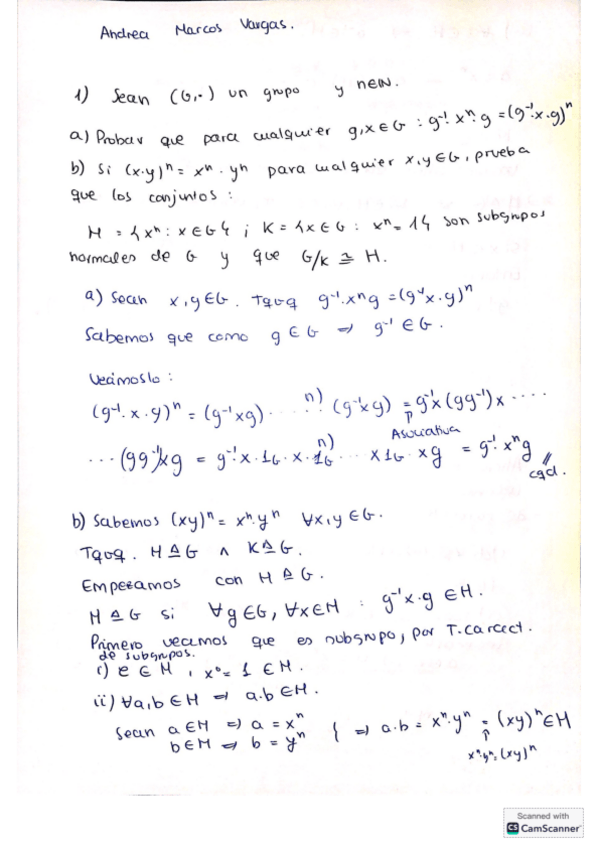 Andrea Marcos Vargas.
1) Sean (G,·) un grupo y n∈ℕ.
a) Probar que para cualquier g,x∈G : g⁻¹·xⁿ·g = (g⁻¹·x·g)ⁿ
b) Si (x·y)ⁿ = xⁿ·yⁿ para cualquier x,y∈G, prueba
que los conjuntos :
H = {xⁿ : x∈G} ; K = {x∈G : xⁿ = 1} son subgrupos
normales de G y que G/K ≅ H.
a) Sean x,g∈G. Tqvq g⁻¹·xⁿg = (g⁻¹x·g)ⁿ
Sabemos que como g∈G ⇒ g⁻¹∈G.
Veámoslo :
(g⁻¹·x·g)ⁿ = (g⁻¹xg) ····ⁿ⁾·· (g⁻¹xg) = g⁻¹x(gg⁻¹)x ····
Asociativa
···(gg⁻¹)xg = g⁻¹x·1G·x·1G ··ⁿ⁾·· x1G·xg = g⁻¹·xⁿg
cqd.
b) Sabemos (xy)ⁿ = xⁿ·yⁿ ∀x,y∈G.
Tqvq. H⊴G ∧ K⊴G.
Empezamos con H⊴G.
H⊴G si ∀g∈G, ∀x∈H : g⁻¹x·g∈H.
Primero veamos que es subgrupo, por T. caract.
de subgrupos.
i) e∈H , x⁰ = 1 ∈H.
ii) ∀a,b∈H ⇒ a·b∈H.
Sean a∈H ⇒ a = xⁿ
b∈H ⇒ b = yⁿ } ⇒ a·b = xⁿ·yⁿ = (xy)ⁿ∈H
xⁿ·yⁿ=(xy)ⁿ
Scanned with
CS CamScanner